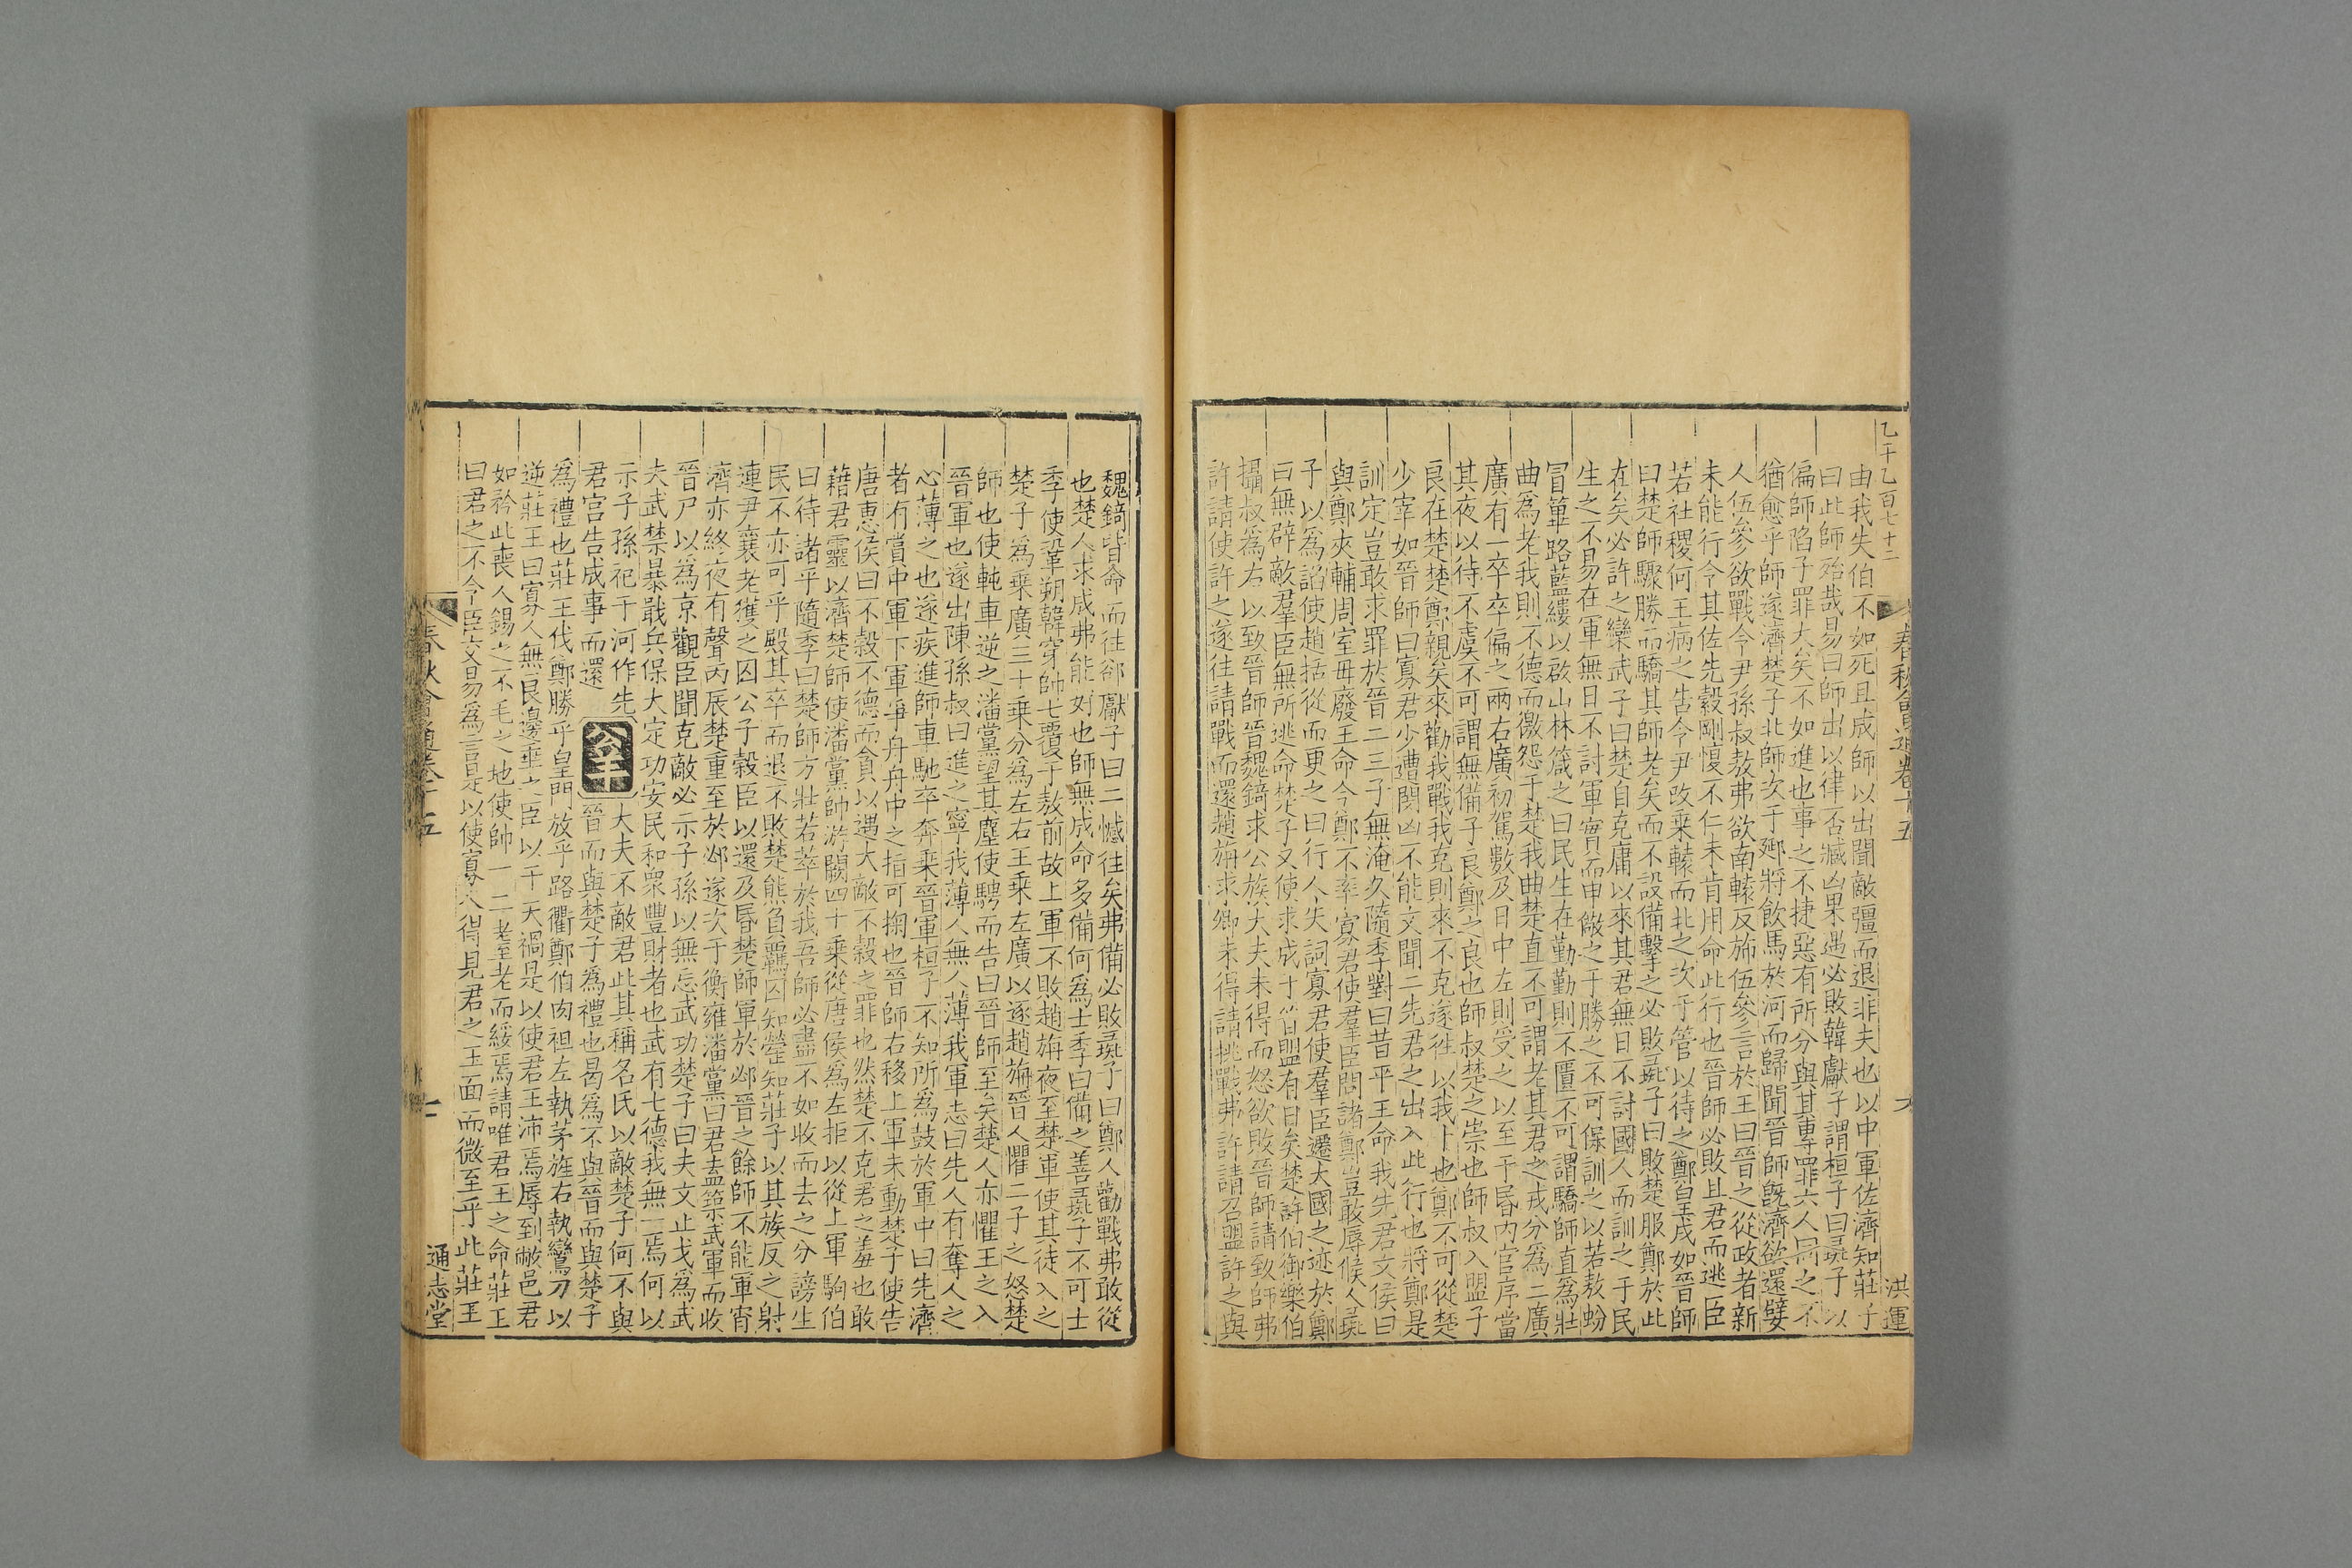 由我失伯不如死且成師以出聞敵彊而退非夫也以中軍佐濟知莊子
曰此師殆哉易曰師出以律否臧凶果遇必敗韓獻子謂桓子曰彘子以
偏師陷子罪大矣不如進也事之不捷惡有所分與其專罪六人同之不
猶愈乎師遂濟楚子北師次于郔將飲馬於河而歸聞晉師旣濟欲還嬖
人伍參欲戰令尹孫叔敖弗欲南轅反旆伍參言於王曰晉之從政者新
未能行令其佐先縠剛愎不仁未肯用命此行也晉師必敗且君而逃臣
若社稷何王病之告令尹改乘轅而北之次于管以待之鄭皇戌如晉師
曰楚師驟勝而驕其師老矣而不設備擊之必敗彘子曰敗楚服鄭於此
在矣必許之欒武子曰楚自克庸以來其君無日不討國人而訓之于民
生之不易在軍無日不討軍實而申儆之于勝之不可保訓之以若敖蚡
冒篳路藍縷以啟山林箴之曰民生在勤勤則不匱不可謂驕師直爲壯
曲爲老我則不德而徼怨于楚我曲楚直不可謂老其君之戎分爲二廣
廣有一卒卒偏之兩右廣初駕數及日中左則受之以至于昏內官序當
其夜以待不虞不可謂無備子良鄭之良也師叔楚之崇也師叔入盟子
良在楚楚鄭親矣來勸我戰我克則來不克遂往以我卜也鄭不可從楚
少宰如晉師曰寡君少遭閔凶不能文聞二先君之出入此行也將鄭是
訓定豈敢求罪於晉二三子無淹久隨季對曰昔平王命我先君文侯曰
與鄭夾輔周室毋廢王命今鄭不率寡君使羣臣問諸鄭豈敢辱候人彘
子以爲諂使趙括從而更之曰行人失詞寡君使羣臣遷大國之迹於鄭
曰無辟敵羣臣無所逃命楚子又使求成于晉盟有日矣楚許伯御樂伯
攝叔爲右以致晉師晉魏錡求公族大夫未得而怒欲敗晉師請致師弗
許請使許之遂往請戰而還趙旃求卿未得請挑戰弗許請召盟許之與
魏錡皆命而往郤獻子曰二憾往矣弗備必敗彘子曰鄭人勸戰弗敢從
也楚人求成弗能好也師無成命多備何爲士季曰備之善彘子不可士
季使鞏朔韓穿帥七覆于敖前故上軍不敗趙旃夜至楚軍使其徒入之
楚子爲乘廣三十乘分爲左右王乘左廣以逐趙旃晉人懼二子之怒楚
師也使軘車逆之潘黨望其塵使騁而告曰晉師至矣楚人亦懼王之入
晉軍也遂出陳孫叔曰進之寧我薄人無人薄我軍志曰先人有奪人之
心薄之也遂疾進師車馳卒奔乘晉軍桓子不知所爲鼓於軍中曰先濟
者有賞中軍下軍爭舟舟中之指可掬也晉師右移上軍未動楚子使告
唐惠侯曰不穀不德而貪以遇大敵不穀之罪也然楚不克君之羞也敢
藉君靈以濟楚師使潘黨帥游闕四十乘從唐侯爲左拒以從上軍駒伯
曰待諸乎隨季曰楚師方壯若萃於我吾師必盡不如收而去之分謗生
民不亦可乎殿其卒而退不敗楚熊負羈囚知罃知莊子以其族反之射
連尹襄老獲之囚公子穀臣以還及昏楚師軍於邲晉之餘師不能軍宵
濟亦終夜有聲丙辰楚重至於邲遂次于衡雍潘黨曰君盍築武軍而收
晉尸以爲京觀臣聞克敵必示子孫以無忘武功楚子曰夫文止戈爲武
夫武禁暴戢兵保大定功安民和衆豐財者也武有七德我無一焉何以
示子孫祀于河作先君宮告成事而還
公羊
大夫不敵君此其稱名氏以敵楚子何不與
晉而與楚子爲禮也曷爲不與晉而與楚子
爲禮也莊王伐鄭勝乎皇門放乎路衢鄭伯肉袒左執茅旌右執鸞刀以
逆莊王曰寡人無良邊垂之臣以干天禍是以使君王沛焉辱到敝邑君
如矜此喪人錫之不毛之地使帥一二耋老而綏焉請唯君王之命莊王
曰君之不令臣交易爲言是以使寡人得見君之玉面而微至乎此莊王
春秋會通卷十五
通志堂
洪運